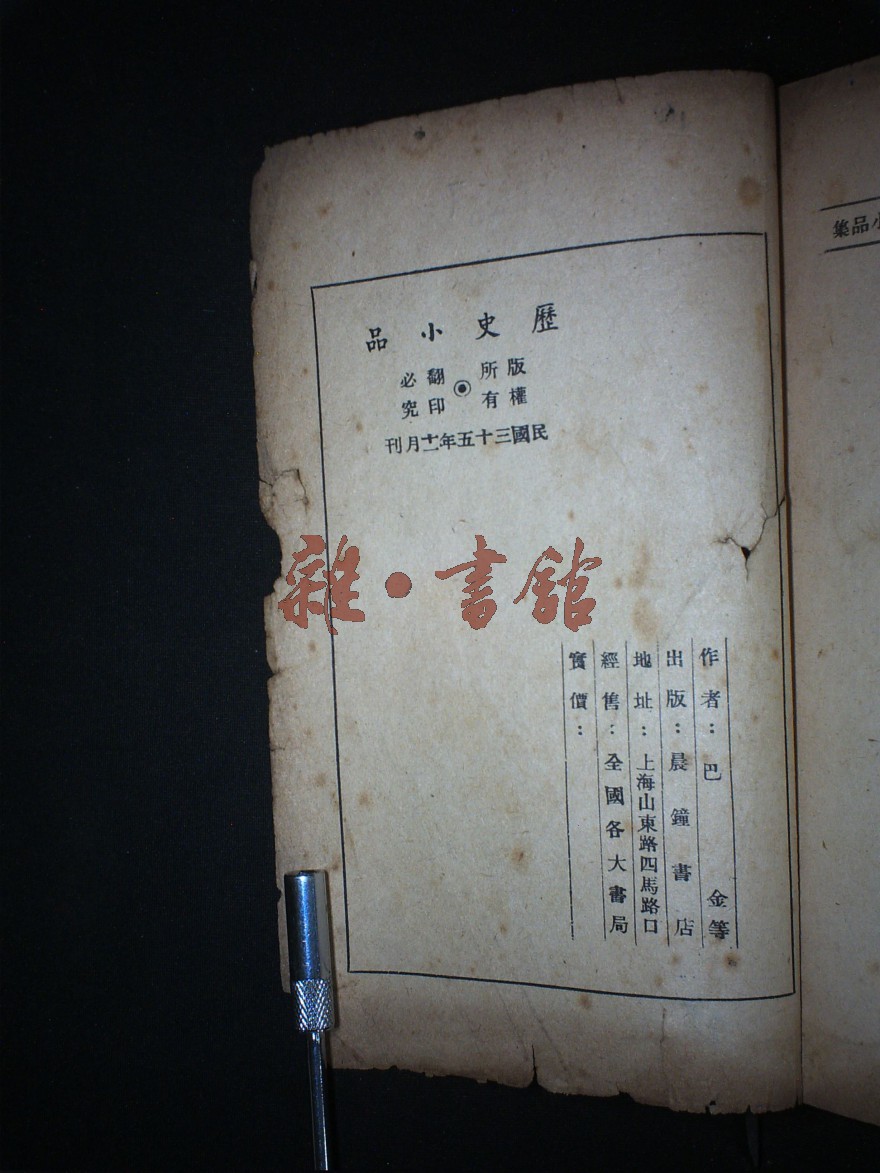 歷史小品
版權所有◉翻印必究
民國三十五年十二月刊
作者：巴金等
出版：晨鐘書店
地址：上海山東路四馬路口
經售：全國各大書局
實價：
小品集
雜·書館